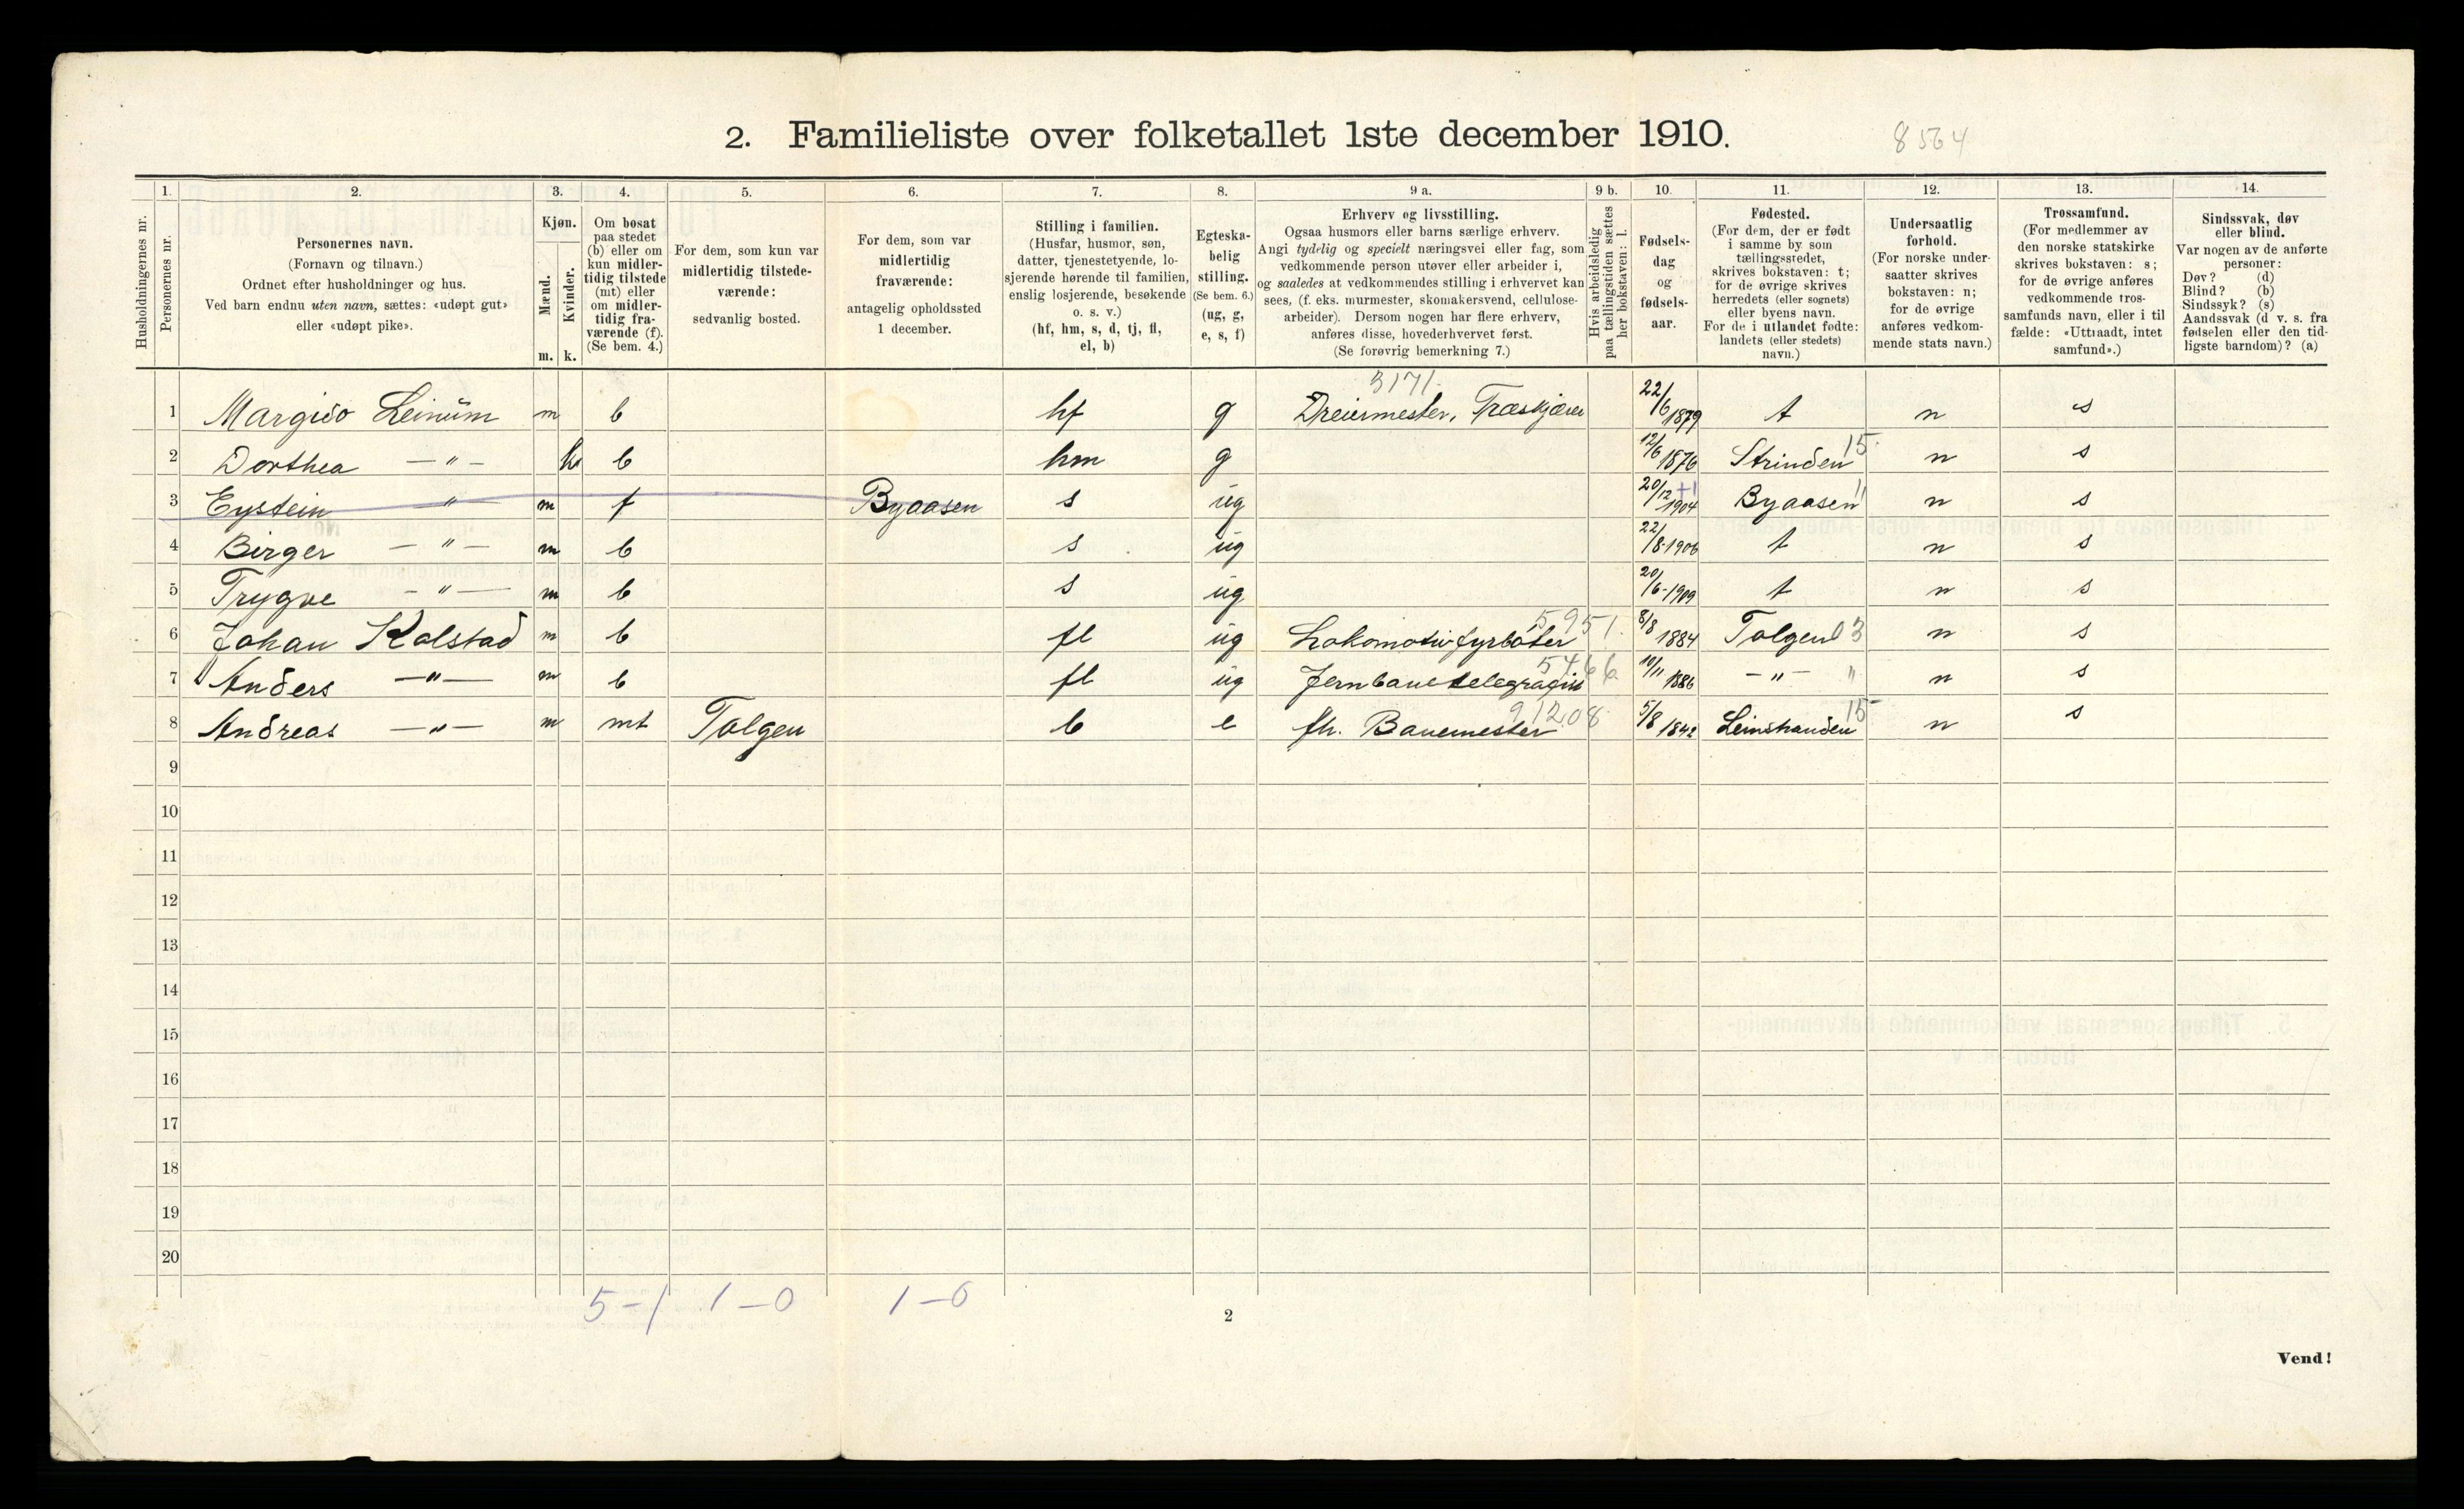 2. Familieliste over folketallet 1ste december 1910.
8564
1. 2. 3. 4. 5. 6. 7. 8. 9 a. 9 b. 10. 11. 12. 13. 14.
Husholdningernes nr.
Personernes nr.
Personernes navn.
(Fornavn og tilnavn.)
Ordnet efter husholdninger og hus.
Ved barn endnu uten navn, sættes: «udøpt gut»
eller «udøpt pike».
Kjøn.
Mænd.
Kvinder.
m. k.
Om bosat
paa stedet
(b) eller om
kun midler-
tidig tilstede
(mt) eller
om midler-
tidig fra-
værende (f).
(Se bem. 4.)
For dem, som kun var
midlertidig tilstede-
værende:
sedvanlig bosted.
For dem, som var
midlertidig
fraværende:
antagelig opholdssted
1 december.
Stilling i familien.
(Husfar, husmor, søn,
datter, tjenestetyende, lo-
sjerende hørende til familien,
enslig losjerende, besøkende
o. s. v.)
(hf, hm, s, d, tj, fl,
el, b)
Egteska-
belig
stilling.
(Se bem. 6.)
(ug, g,
e, s, f)
Erhverv og livsstilling.
Ogsaa husmors eller barns særlige erhverv.
Angi tydelig og specielt næringsvei eller fag, som
vedkommende person utøver eller arbeider i,
og saaledes at vedkommendes stilling i erhvervet kan
sees, (f. eks. murmester, skomakersvend, cellulose-
arbeider). Dersom nogen har flere erhverv,
anføres disse, hovederhvervet først.
(Se forøvrig bemerkning 7.)
Hvis arbeidsledig
paa tællingstiden sættes
her bokstaven: l.
Fødsels-
dag
og
fødsels-
aar.
Fødested.
(For dem, der er født
i samme by som
tællingsstedet,
skrives bokstaven: t;
for de øvrige skrives
herredets (eller sognets)
eller byens navn.
For de i utlandet fødte:
landets (eller stedets)
navn.)
Undersaatlig
forhold.
(For norske under-
saatter skrives
bokstaven: n;
for de øvrige
anføres vedkom-
mende stats navn.)
Trossamfund.
(For medlemmer av
den norske statskirke
skrives bokstaven: s;
for de øvrige anføres
vedkommende tros-
samfunds navn, eller i til
fælde: «Uttraadt, intet
samfund».)
Sindssvak, døv
eller blind.
Var nogen av de anførte
personer:
Døv? (d)
Blind? (b)
Sindssyk? (s)
Aandssvak (d v. s. fra
fødselen eller den tid-
ligste barndom)? (a)
1 Margido Leinum m b hf g 5171. Dreiermester, Træskjærer 22/6 1879 t n s
2 Dorthea — " — k b hm g 12/6 1876 Strinden 15 n s
3 Eystein " m f Byaasen s ug 20/12 1904 Byaasen " n s
4 Birger — " — m b s ug 22/8-1906 t n s
5 Trygve — " — m b s ug 20/6-1909 t n s
6 Johan Kolstad m b fl ug Lokomotivfyrbøter 5951. 8/8 1884 Tolgen 03 n s
7 Anders — " — m b fl ug Jernbanetelegrafist 5466 10/11 1886 — " — " n s
8 Andreas — " — m mt Tolgen b e fh. Banemester 91208 5/8 1842 Leinstranden 15 n s
9
10
11
12
13
14
15
16
17
18
19
20
5-1 1-0 1-0
2
Vend!